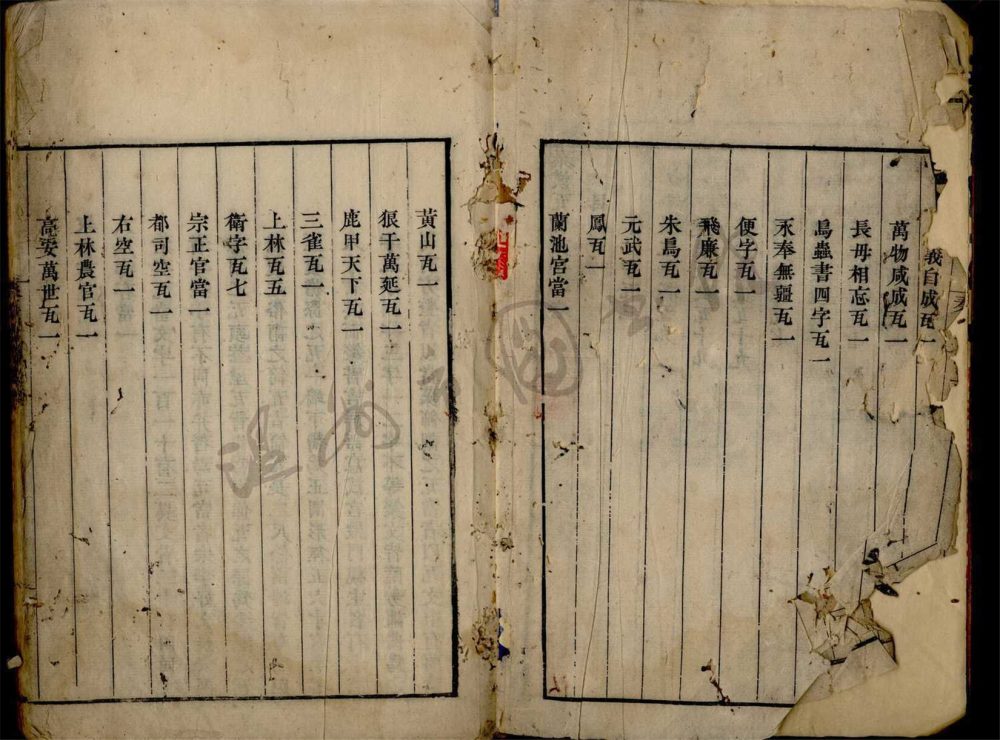 義自成瓦一
萬物咸成瓦一
長毋相忘瓦一
鳥蟲書四字瓦一
永奉無疆瓦一
便字瓦一
飛廉瓦一
朱鳥瓦一
元武瓦一
鳳瓦一
蘭池宮當一
黃山瓦一
狼干萬延瓦一
鹿甲天下瓦一
三雀瓦一
上林瓦五
衛字瓦七
宗正官當一
都司空瓦一
右空瓦一
上林農官瓦一
高安萬世瓦一